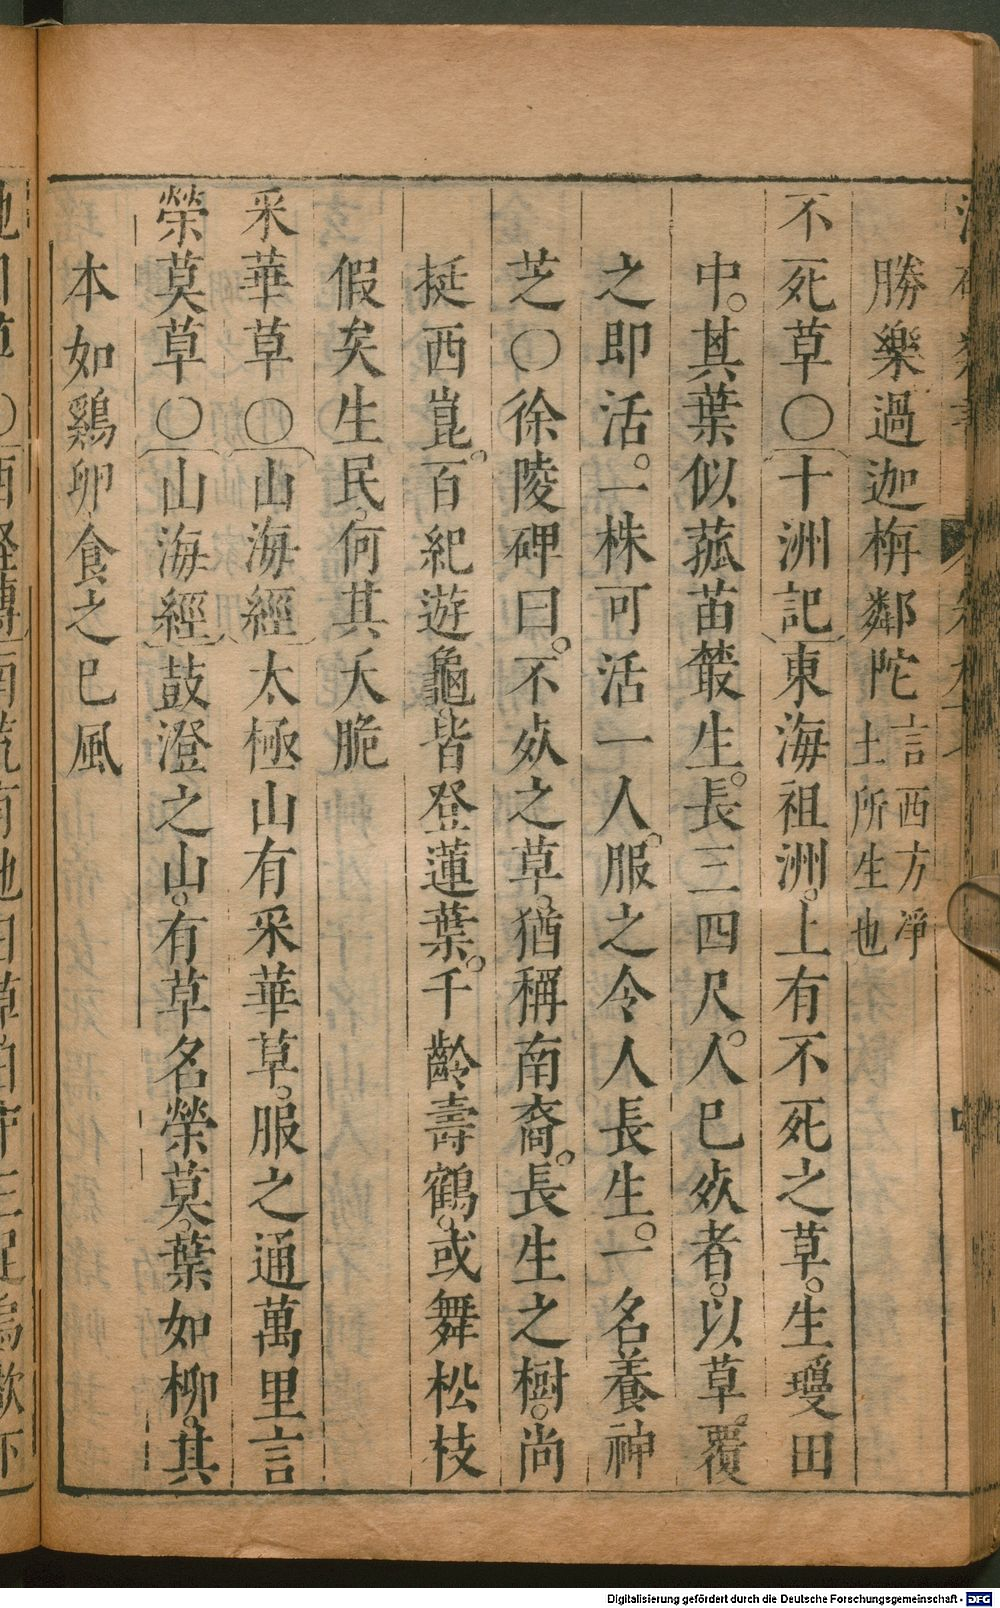 勝樂過迦栴鄰陀言西方淨土所生也
不死草〇十洲記東海祖洲。上有不死之草。生瓊田
中。其葉似菰苗叢生。長三四尺。人已㱙者。以草。覆
之即活。一株可活一人。服之令人長生。一名養神
芝〇徐陵碑曰。不㱙之草。猶稱南裔。長生之樹。尚
挺西崑。百紀遊龜。皆登蓮葉。千齡壽鶴。或舞松枝
假矣生民。何其夭脆
釆華草〇山海經太極山有釆華草。服之通萬里言
榮莫草〇山海經鼓澄之山。有草名榮莫。葉如柳。其
本如鷄卵食之已風
Digitalisierung gefördert durch die Deutsche Forschungsgemeinschaft - DFG